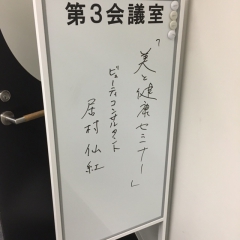 第3会議室
「美と健康セミナー」
ビューティコンサルタント
居村仙紅